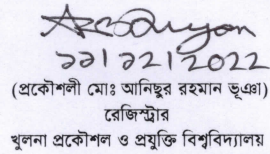 ১১/১২/2022
(প্রকৌশলী মোঃ আনিছুর রহমান ভূঞা)
রেজিস্ট্রার
খুলনা প্রকৌশল ও প্রযুক্তি বিশ্ববিদ্যালয়